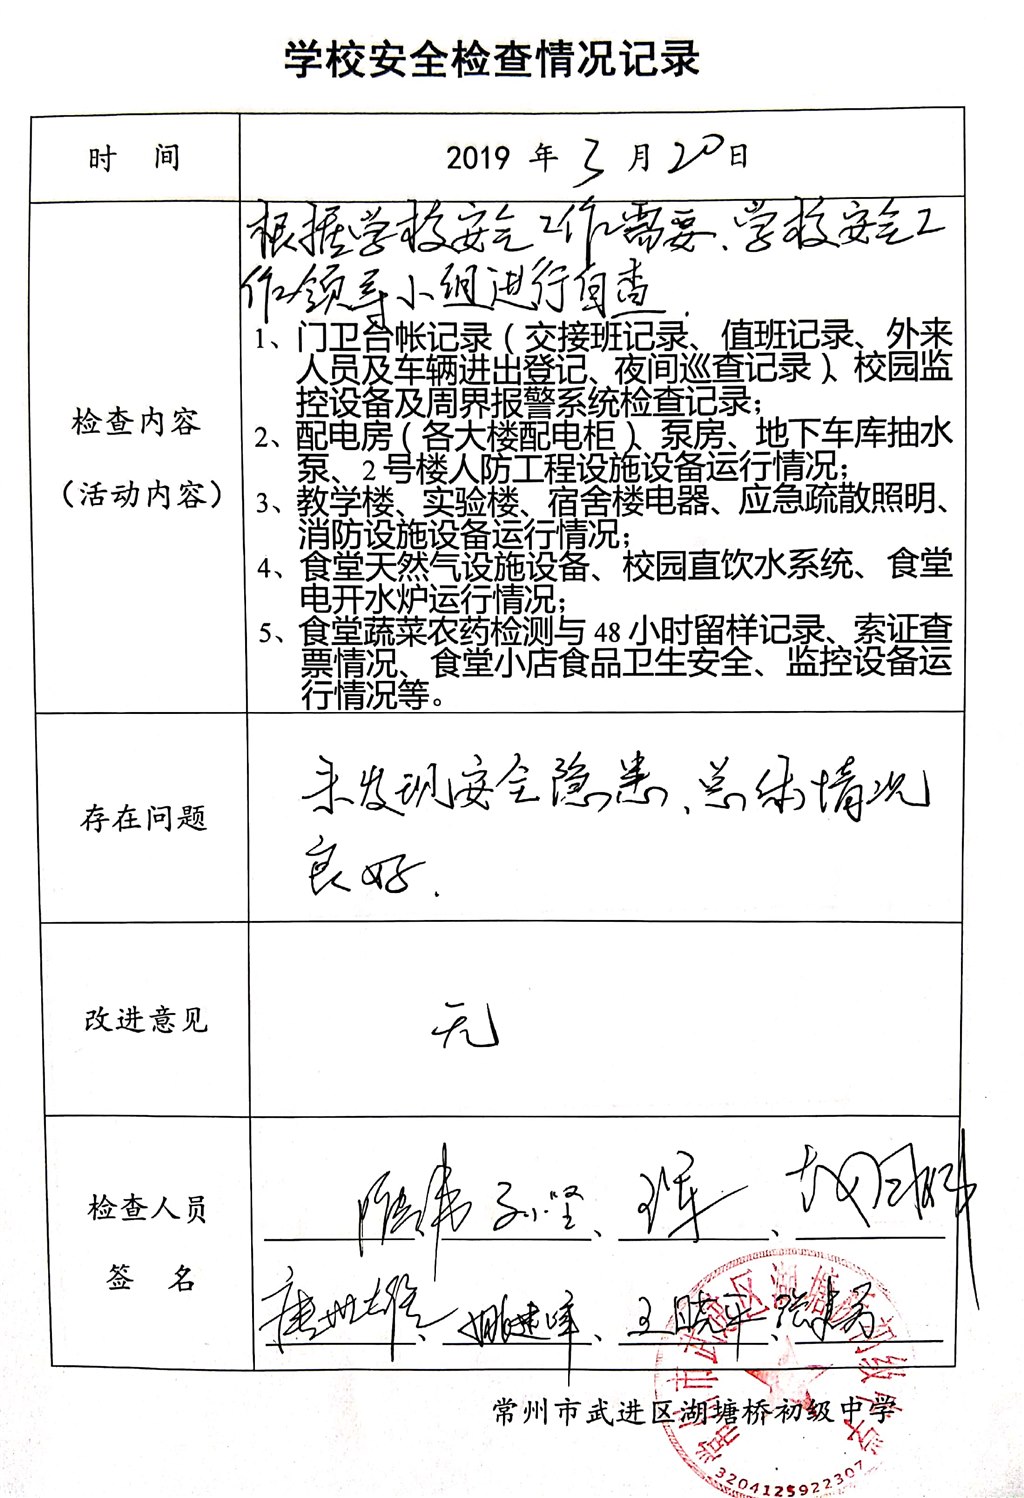 学校安全检查情况记录
时 间
2019 年 3 月 20 日
检查内容
（活动内容）
根据学校安全工作需要、学校安全工
作领导小组进行自查.
1、门卫台帐记录（交接班记录、值班记录、外来
人员及车辆进出登记、夜间巡查记录）、校园监
控设备及周界报警系统检查记录；
2、配电房（各大楼配电柜）、泵房、地下车库抽水
泵、2 号楼人防工程设施设备运行情况；
3、教学楼、实验楼、宿舍楼电器、应急疏散照明、
消防设施设备运行情况；
4、食堂天然气设施设备、校园直饮水系统、食堂
电开水炉运行情况；
5、食堂蔬菜农药检测与 48 小时留样记录、索证查
票情况、食堂小店食品卫生安全、监控设备运
行情况等。
存在问题
未发现安全隐患、总体情况
良好.
改进意见
无
检查人员
签 名
孙坚、王军、
唐世雄、姚建峰、王晓平
常州市武进区湖塘桥初级中学
常州市武进区湖塘桥初级中学
3204125922307